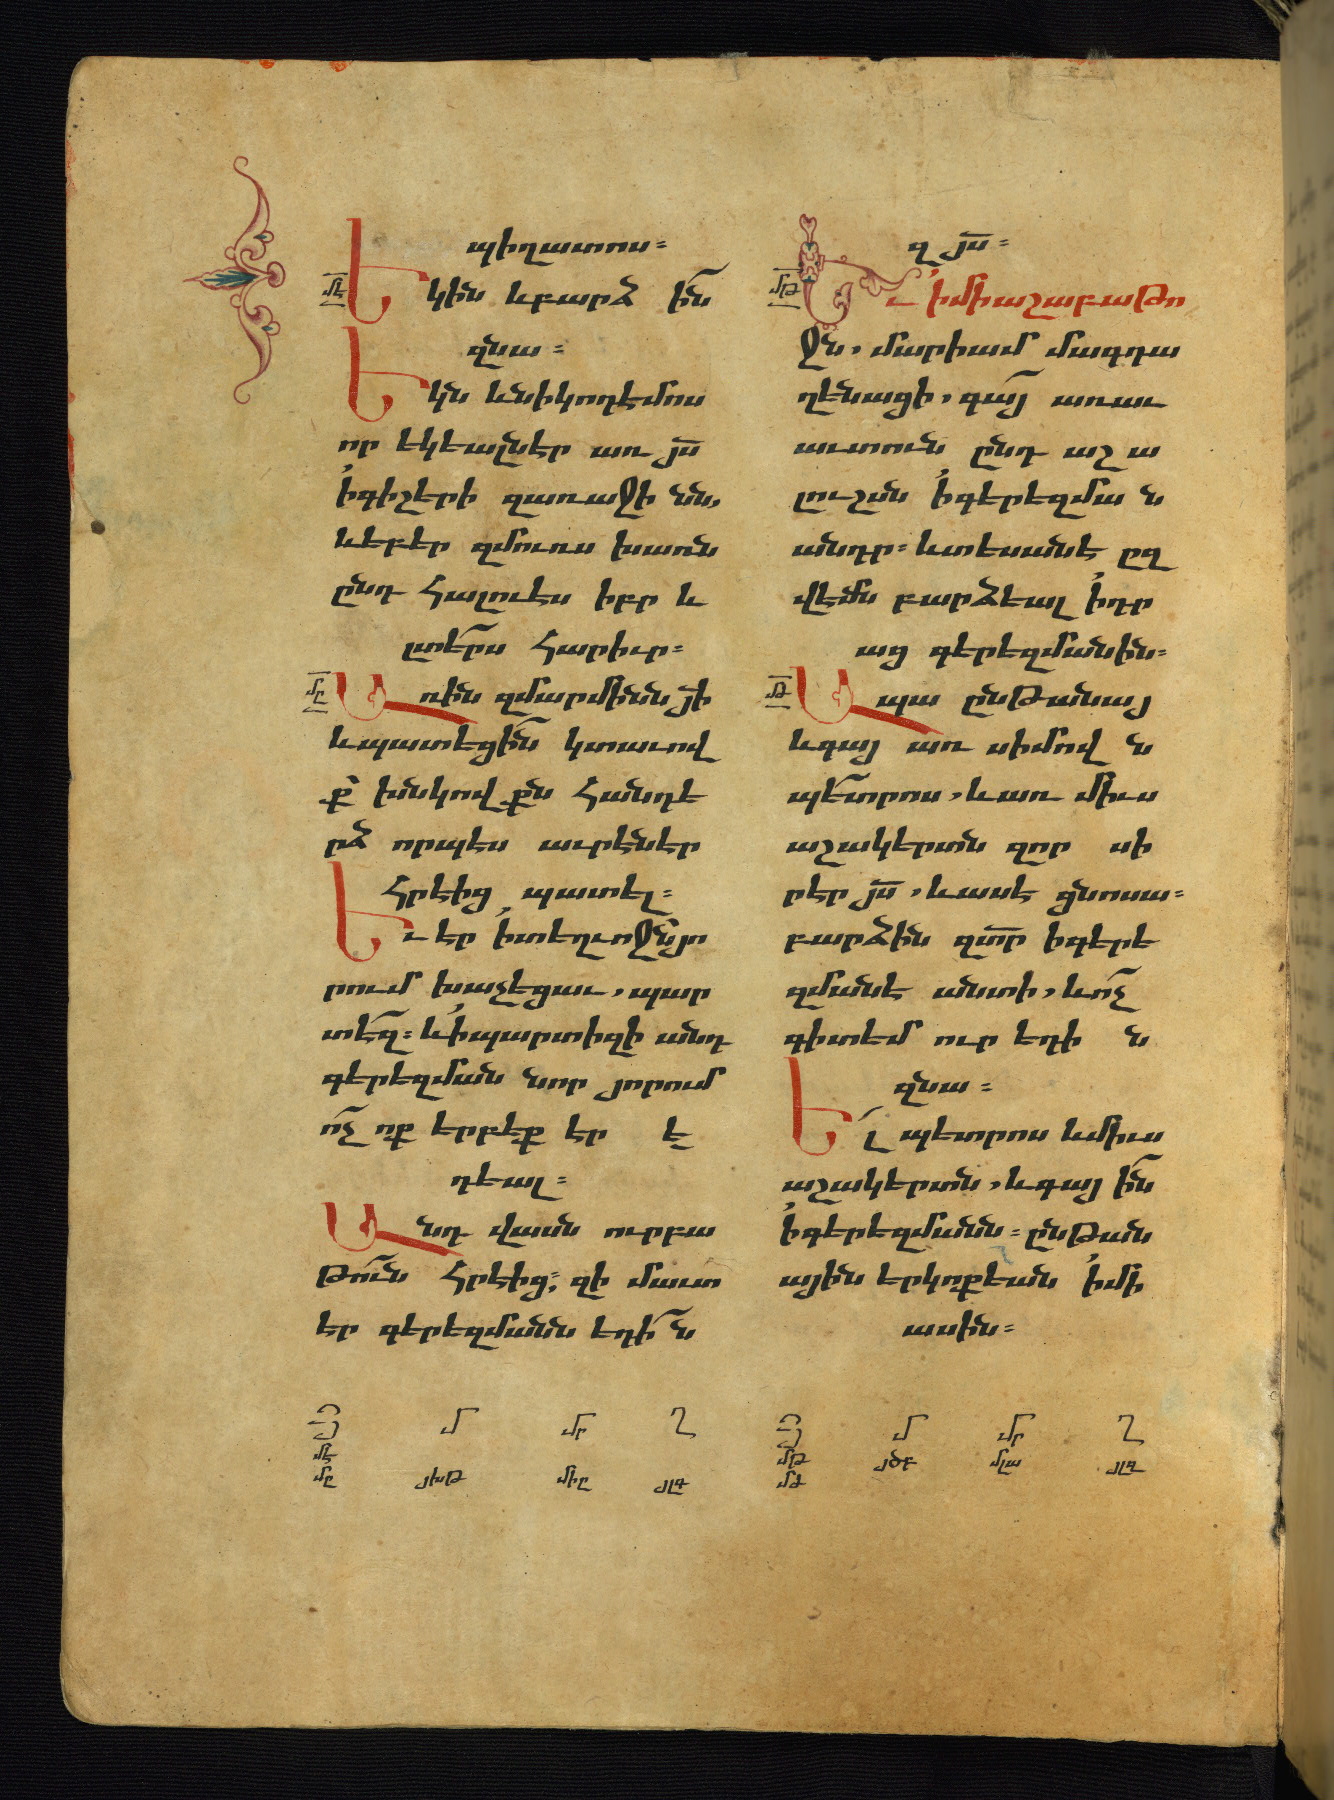 պիղատոս։
Եկին և բարձ ին
զնա։
Եկն և նիկոդէմոս
որ եկեալ ներ առ յս
ի գիշերի զառաջինն,
և եբեր զմուռս խառն
ընդ հալուէս իբր և
լտերս հարիւր։
Առին զմարմինն յի
և պատեցին կտաւով
ք խնկովքն հանդե
րձ որպէս աւրէն էր
հրէից պատել։
Եւ էր ի տեղւոջն յո
րում խաչեցաւ, պար
տէզ։ և ի պարտիզի անդ
գերեզման նոր յորում
ոչ ոք երբեք էր ե
դեալ։
Անդ վասն ուրբա
թուն հրէից։ զի մաւտ
էր գերեզմանն եդին
զյս։
Եւ ի միաշաբաթո
ջն, մարիամ մագդա
ղենացի, գայ առաւ
աւտուն ընդ աշա
լուշսն ի գերեզման
անդր։ և տեսանէ ըզ
վէմն բարձեալ ի դր
աց գերեզմանին։
Ապա ընթանայ
և գայ առ սիմովն
պետրոս, և առ միւս
աշակերտն զոր սի
րէր յս, և ասէ ցնոսա։
բարձին զտր ի գերե
զմանէ անտի, և ոչ
գիտեմ ուր եդին
զնա։
Ել պետրոս և միւս
աշակերտն, և գայ ին
ի գերեզմանն։ ընթան
ային երկոքեան ի մի
ասին։